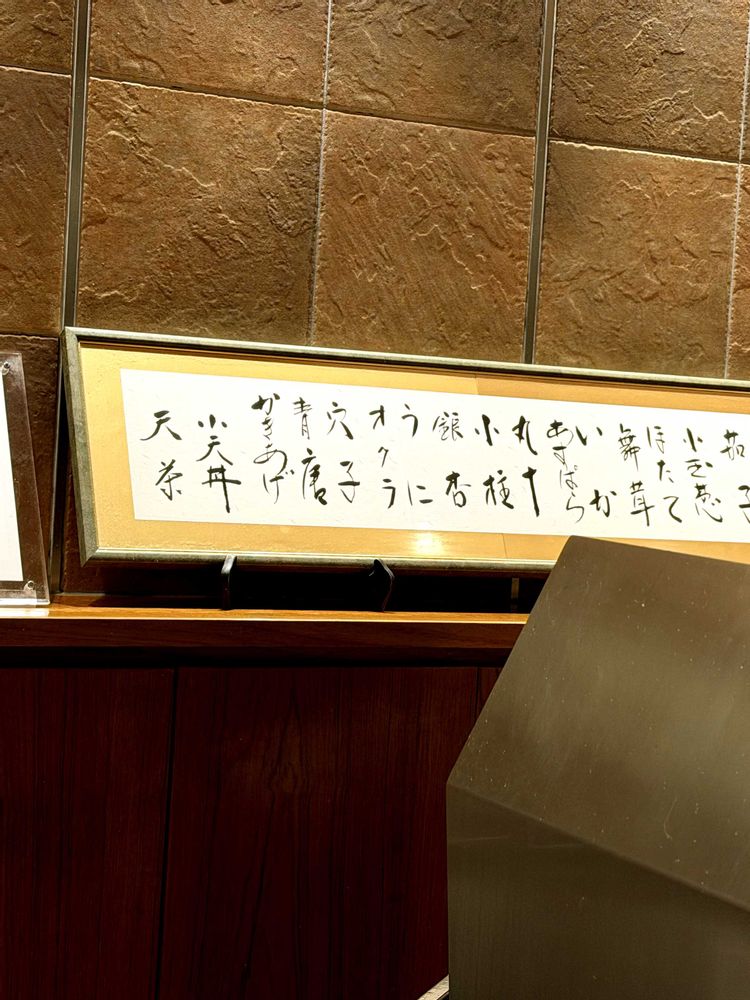 茄子
小玉葱
ほたて
舞茸
いか
あすぱら
丸十
小柱
銀杏
うに
オクラ
穴子
青唐
かきあげ
小天丼
天茶